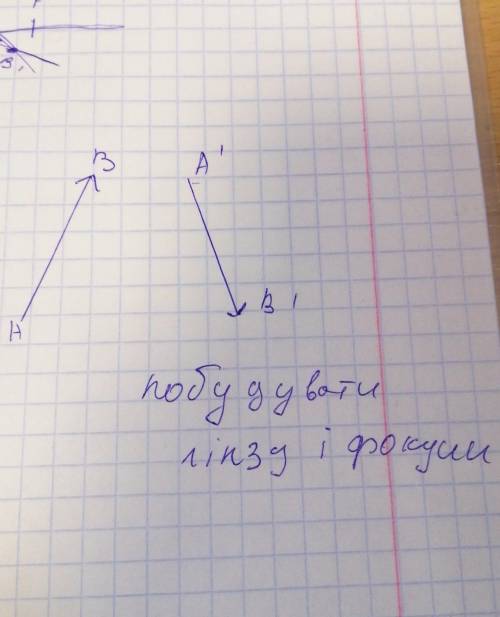 B A'
A B'
побудувати
лінзу і фокуси